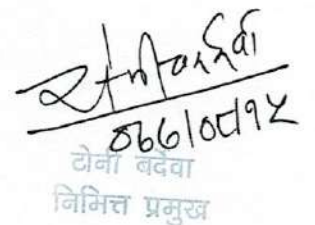 ०७७|०८|१५
टोनी बदेवा
निमित्त प्रमुख